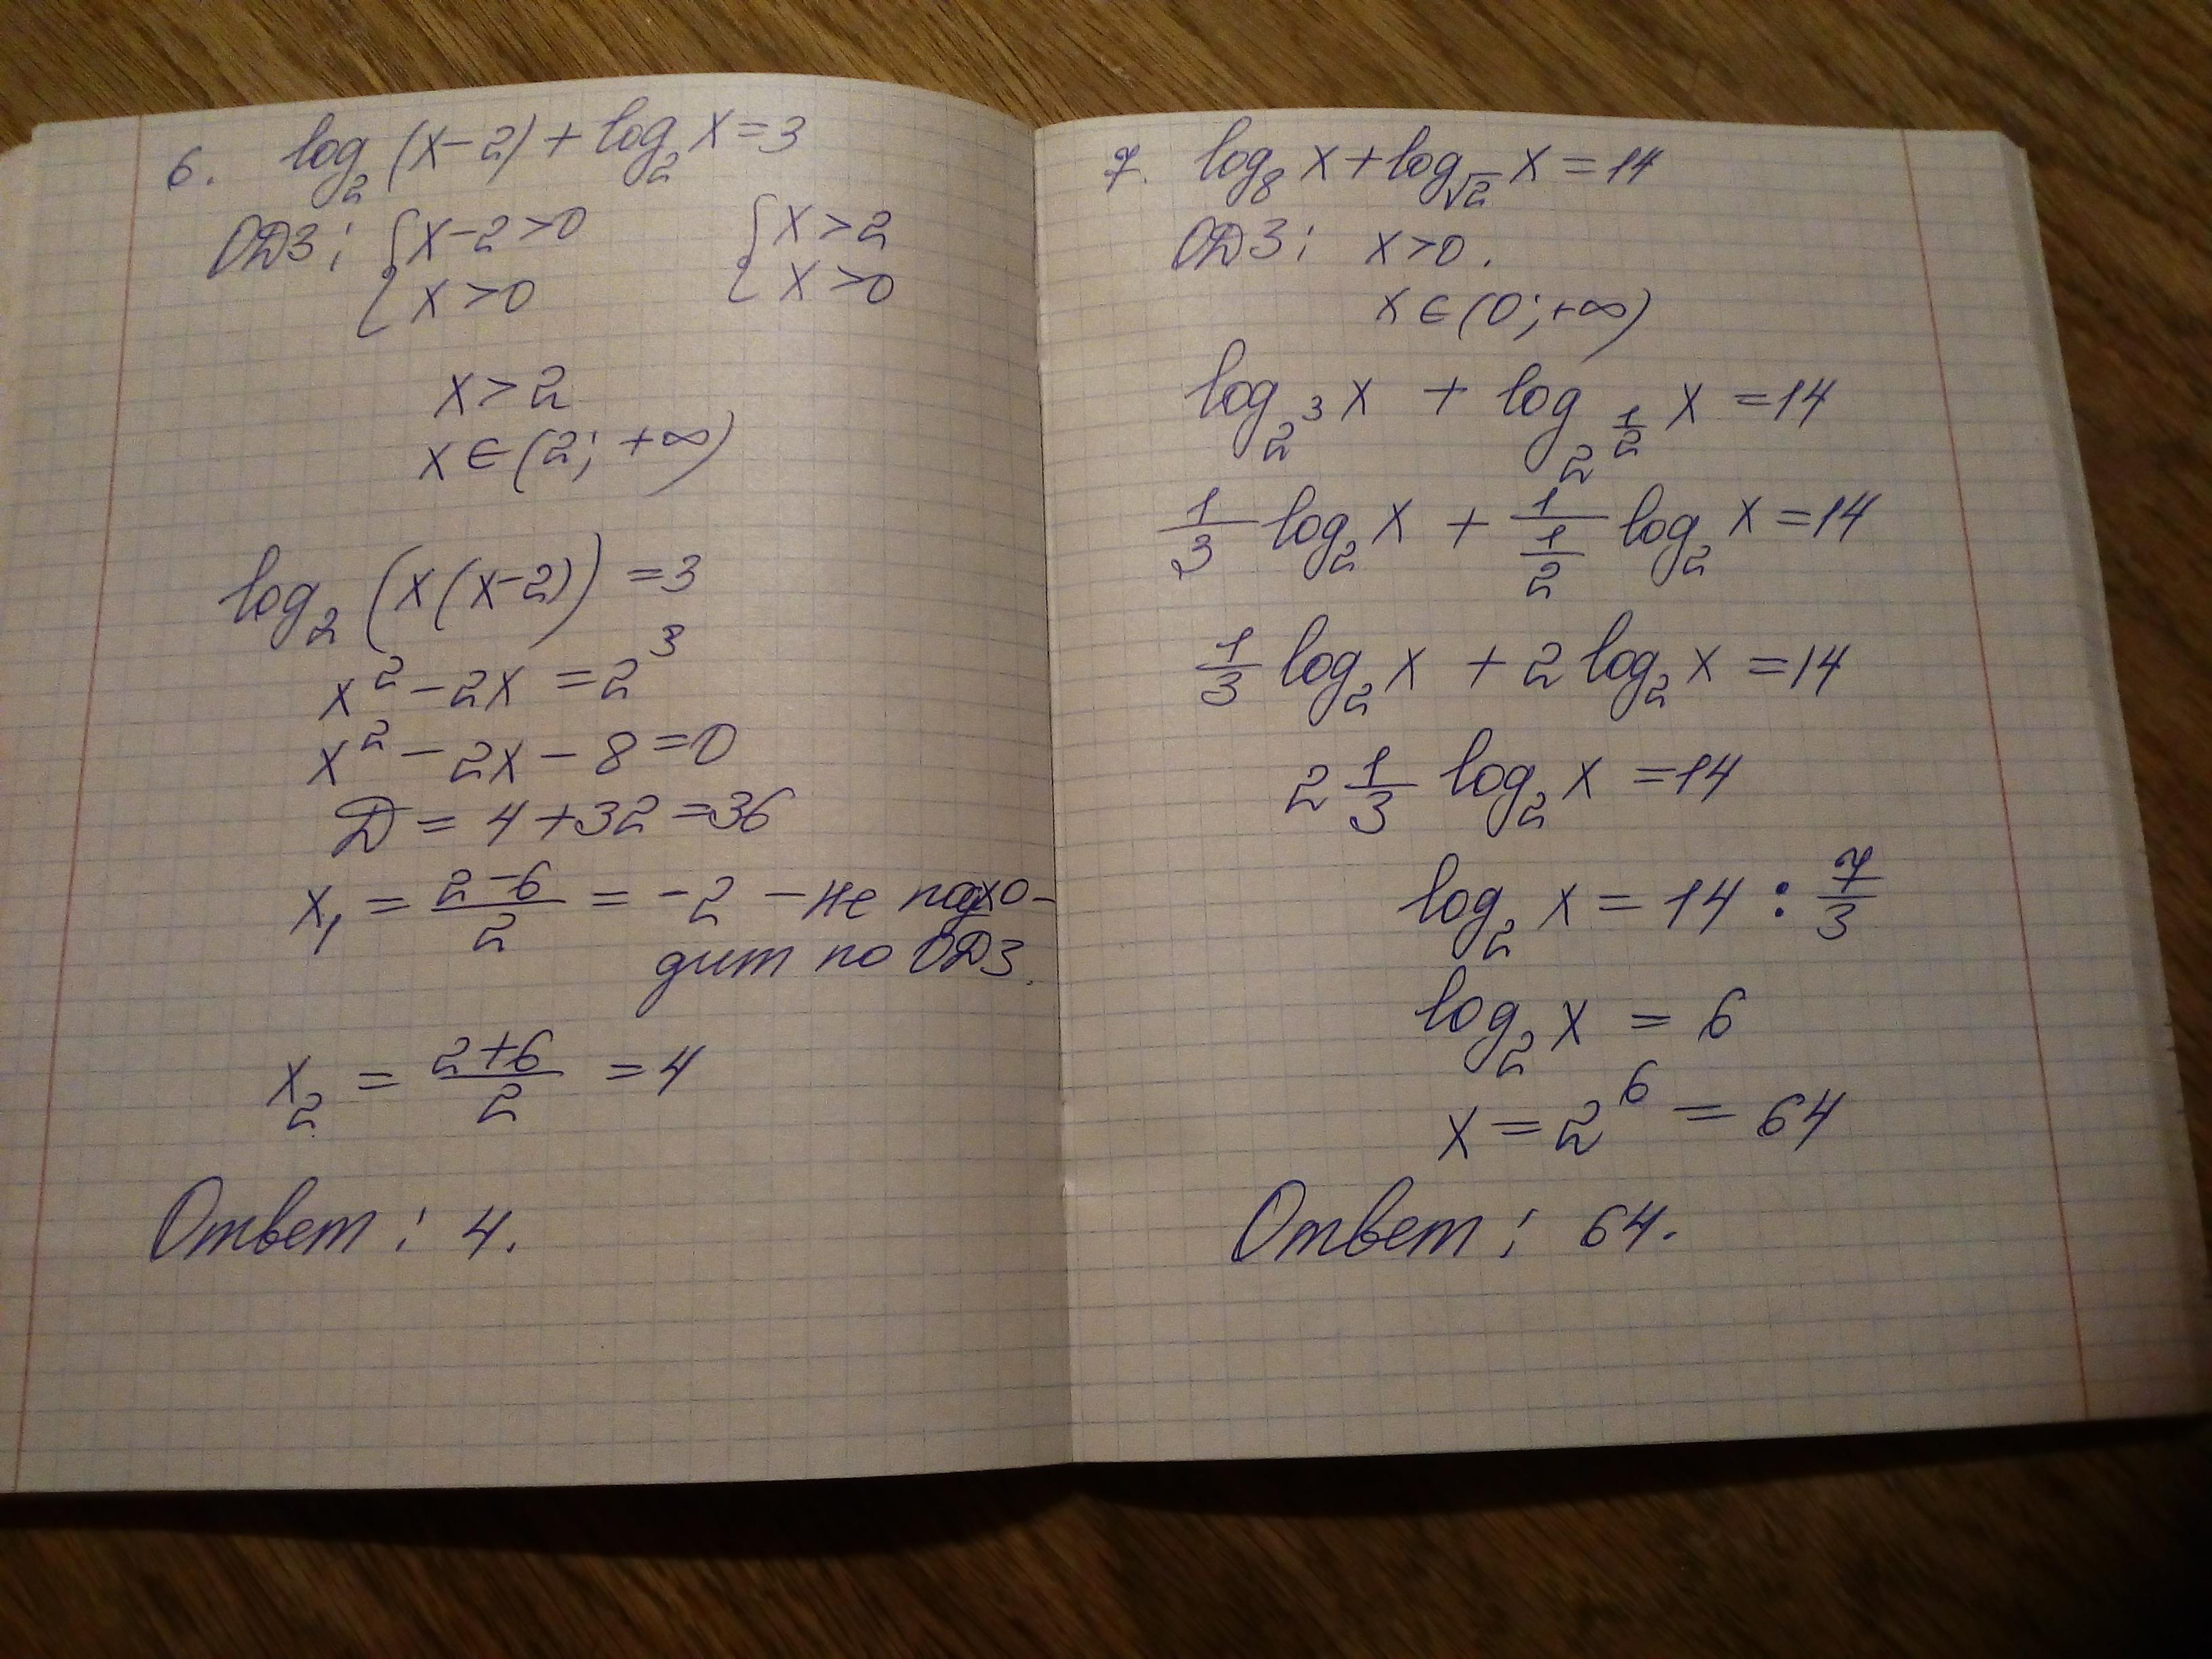 6. log₂(x-2)+log₂x=3
ОДЗ: {x-2>0 {x>2
{x>0 {x>0
x>2
x∈(2;+∞)
log₂(x(x-2))=3
x²-2x=2³
x²-2x-8=0
D=4+32=36
x₁=(2-6)/2=-2 - не подхо-
дит по ОДЗ.
x₂=(2+6)/2=4
Ответ: 4.
7. log₈x+log_√2 x=14
ОДЗ: x>0.
x∈(0;+∞)
log_2³ x + log_2^(1/2) x =14
1/3 log₂x + 1/(1/2) log₂x=14
1/3 log₂x +2log₂x=14
2 1/3 log₂x=14
log₂x=14:7/3
log₂x=6
x=2⁶=64
Ответ: 64.